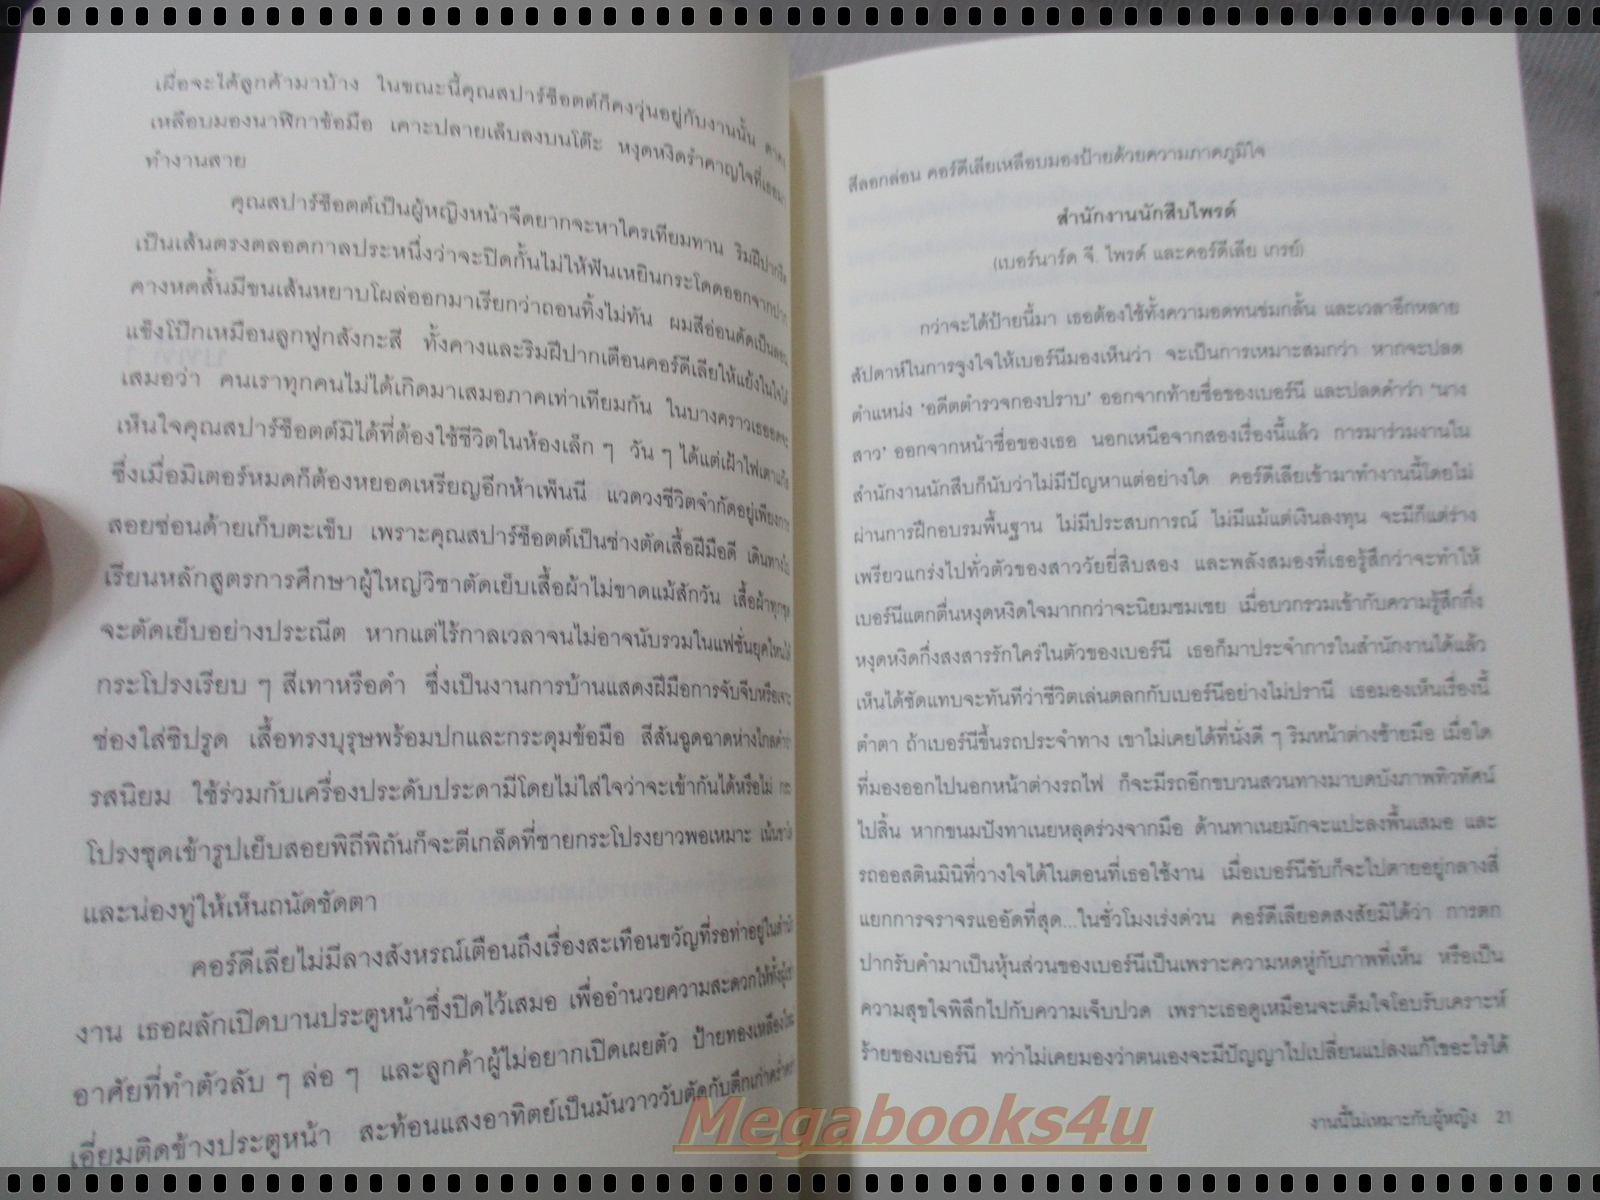 เผื่อจะได้ลูกค้ามาบ้าง ในขณะนี้คุณสปาร์ช็อตต์ก็คงวุ่นอยู่กับงานนั้น
เหลือบมองนาฬิกาข้อมือ เคาะปลายเล็บลงบนโต๊ะ หงุดหงิดรำคาญใจที่เธอมา
ทำงานสาย
คุณสปาร์ช็อตต์เป็นผู้หญิงหน้าจืดยากจะหาใครเทียมทาน ริมฝีปาก
เป็นเส้นตรงตลอดกาลประหนึ่งว่าจะปิดกั้นไม่ให้ฟันเหยินกระโดดออกจากปาก
คางหดสั้นมีขนเส้นหยาบโผล่ออกมาเรียกว่าถอนทิ้งไม่ทัน ผมสีอ่อนดัดเป็นลอน
แข็งโป๊กเหมือนลูกฟูกสังกะสี ทั้งคางและริมฝีปากเตือนคอร์ดีเลียให้แย้งในใจได้
เสมอว่า คนเราทุกคนไม่ได้เกิดมาเสมอภาคเท่าเทียมกัน ในบางคราวเธออดจะ
เห็นใจคุณสปาร์ช็อตต์มิได้ที่ต้องใช้ชีวิตในห้องเล็ก ๆ วัน ๆ ได้แต่เฝ้าไฟเตาแก๊ส
ซึ่งเมื่อมิเตอร์หมดก็ต้องหยอดเหรียญอีกห้าเพ็นนี แวดวงชีวิตจำกัดอยู่เพียงการ
สอยซ่อนด้ายเก็บตะเข็บ เพราะคุณสปาร์ช็อตต์เป็นช่างตัดเสื้อฝีมือดี เดินทางไป
เรียนหลักสูตรการศึกษาผู้ใหญ่วิชาตัดเย็บเสื้อผ้าไม่ขาดแม้สักวัน เสื้อผ้าทุกชุด
จะตัดเย็บอย่างประณีต หากแต่ไร้กาลเวลาจนไม่อาจนับรวมในแฟชั่นยุคไหนได้
กระโปรงเรียบ ๆ สีเทาหรือดำ ซึ่งเป็นงานการบ้านแสดงฝีมือการจับจีบหรือเจาะ
ช่องใส่ซิปรูด เสื้อทรงบุรุษพร้อมปกและกระดุมข้อมือ สีสันฉูดฉาดห่างไกลคำว่า
รสนิยม ใช้ร่วมกับเครื่องประดับประดามีโดยไม่ใส่ใจว่าจะเข้ากันได้หรือไม่ กระ
โปรงชุดเข้ารูปเย็บสอยพิถีพิถันก็จะตีเกล็ดที่ชายกระโปรงยาวพอเหมาะ เน้น
และน่องทู่ให้เห็นถนัดชัดตา
คอร์ดีเลียไม่มีลางสังหรณ์เตือนถึงเรื่องสะเทือนขวัญที่รอท่าอยู่ในสำนัก
งาน เธอผลักเปิดบานประตูหน้าซึ่งปิดไว้เสมอ เพื่ออำนวยความสะดวกให้ทั้งผู้เช่า
อาศัยที่ทำตัวลับ ๆ ล่อ ๆ และลูกค้าผู้ไม่อยากเปิดเผยตัว ป้ายทองเหลือง
เอี่ยมติดข้างประตูหน้า สะท้อนแสงอาทิตย์เป็นมันวาววับตัดกับตึกเก่าคร่ำคร่า
สีลอกล่อน คอร์ดีเลียเหลือบมองป้ายด้วยความภาคภูมิใจ
สำนักงานนักสืบไพรด์
(เบอร์นาร์ด จี. ไพรด์ และคอร์ดีเลีย เกรย์)
กว่าจะได้ป้ายนี้มา เธอต้องใช้ทั้งความอดทนข่มกลั้น และเวลาอีกหลาย
สัปดาห์ในการจูงใจให้เบอร์นีมองเห็นว่า จะเป็นการเหมาะสมกว่า หากจะปลด
ตำแหน่ง 'อดีตตำรวจกองปราบ' ออกจากท้ายชื่อของเบอร์นี และปลดคำว่า 'นาง
สาว' ออกจากหน้าชื่อของเธอ นอกเหนือจากสองเรื่องนี้แล้ว การมาร่วมงานใน
สำนักงานนักสืบก็นับว่าไม่มีปัญหาแต่อย่างใด คอร์ดีเลียเข้ามาทำงานนี้โดยไม่
ผ่านการฝึกอบรมพื้นฐาน ไม่มีประสบการณ์ ไม่มีแม้แต่เงินลงทุน จะมีก็แต่ร่าง
เพรียวแกร่งไปทั่วตัวของสาววัยยี่สิบสอง และพลังสมองที่เธอรู้สึกว่าจะทำให้
เบอร์นีแตกตื่นหงุดหงิดใจมากกว่าจะนิยมชมเชย เมื่อบวกรวมเข้ากับความรู้สึกกึ่ง
หงุดหงิดกึ่งสงสารรักใคร่ในตัวของเบอร์นี เธอก็มาประจำการในสำนักงานได้แล้ว
เห็นได้ชัดแทบจะทันทีว่าชีวิตเล่นตลกกับเบอร์นีอย่างไม่ปรานี เธอมองเห็นเรื่องนี้
ตำตา ถ้าเบอร์นีขึ้นรถประจำทาง เขาไม่เคยได้ที่นั่งดี ๆ ริมหน้าต่างซ้ายมือ เมื่อใด
ที่มองออกไปนอกหน้าต่างรถไฟ ก็จะมีรถอีกขบวนสวนทางมาบดบังภาพทิวทัศน์
ไปสิ้น หากขนมปังทาเนยหลุดร่วงจากมือ ด้านทาเนยมักจะแปะลงพื้นเสมอ และ
รถออสตินมินิที่วางใจได้ในตอนที่เธอใช้งาน เมื่อเบอร์นีขับก็จะไปตายอยู่กลางสี่
แยกการจราจรแออัดที่สุด...ในชั่วโมงเร่งด่วน คอร์ดีเลียอดสงสัยมิได้ว่า การตก
ปากรับคำมาเป็นหุ้นส่วนของเบอร์นีเป็นเพราะความหดหู่กับภาพที่เห็น หรือเป็น
ความสุขใจพิลึกไปกับความเจ็บปวด เพราะเธอดูเหมือนจะเต็มใจโอบรับเคราะห์
ร้ายของเบอร์นี ทว่าไม่เคยมองว่าตนเองจะมีปัญญาไปเปลี่ยนแปลงแก้ไขอะไรได้
งานนี้ไม่เหมาะกับผู้หญิง 21
Megabooks4u